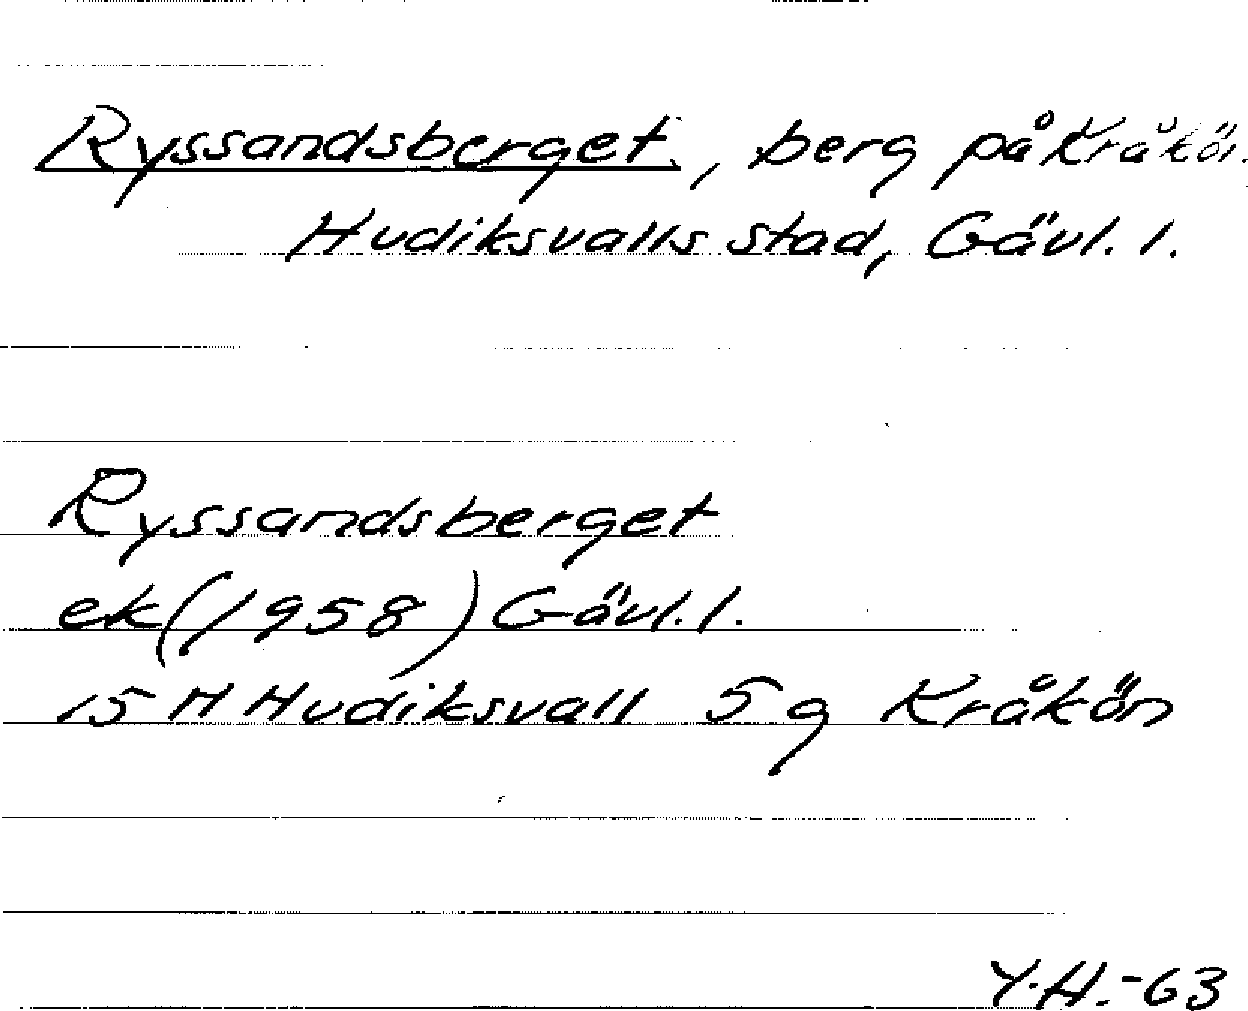 Ryssandsberget, berg på Kråkön.
Hudiksvalls stad, Gävl. l.
Ryssandsberget
ek (1958) Gävl. l.
15 H Hudiksvall 5g Kråkön
Y.H.-63